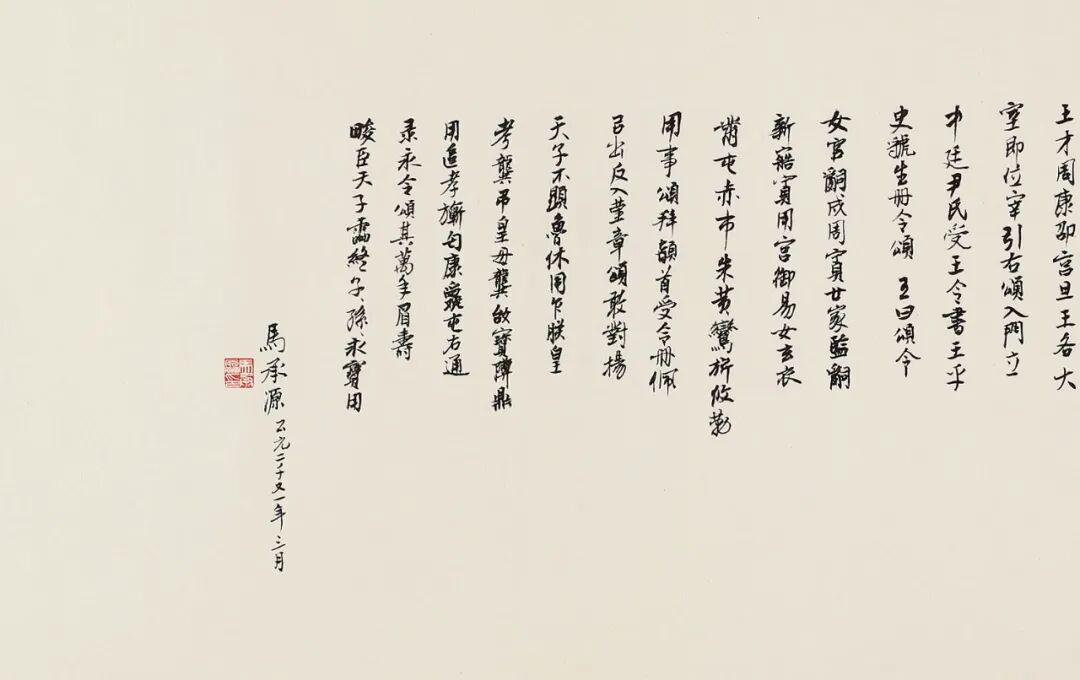 王才周康卲宫旦王各大
室即位宰引右頌入門立
中廷尹氏受王令書王乎
史虩生册令頌 王曰頌令
女官嗣成周賨廿家監嗣
新寤賨用宫御易女玄衣
黹屯赤巿朱黄鸞旂攸勒
用事頌拜䭫首受令册佩
㠯出反入堇章頌敢對揚
天子不顯魯休用乍朕皇
考龏弔皇母龏姒寶䵼鼎
用追孝旂匄康屯右通
录永令頌其萬年眉壽
畯臣天子霝終子孫永寶用
馬承源 公元二千又一年三月